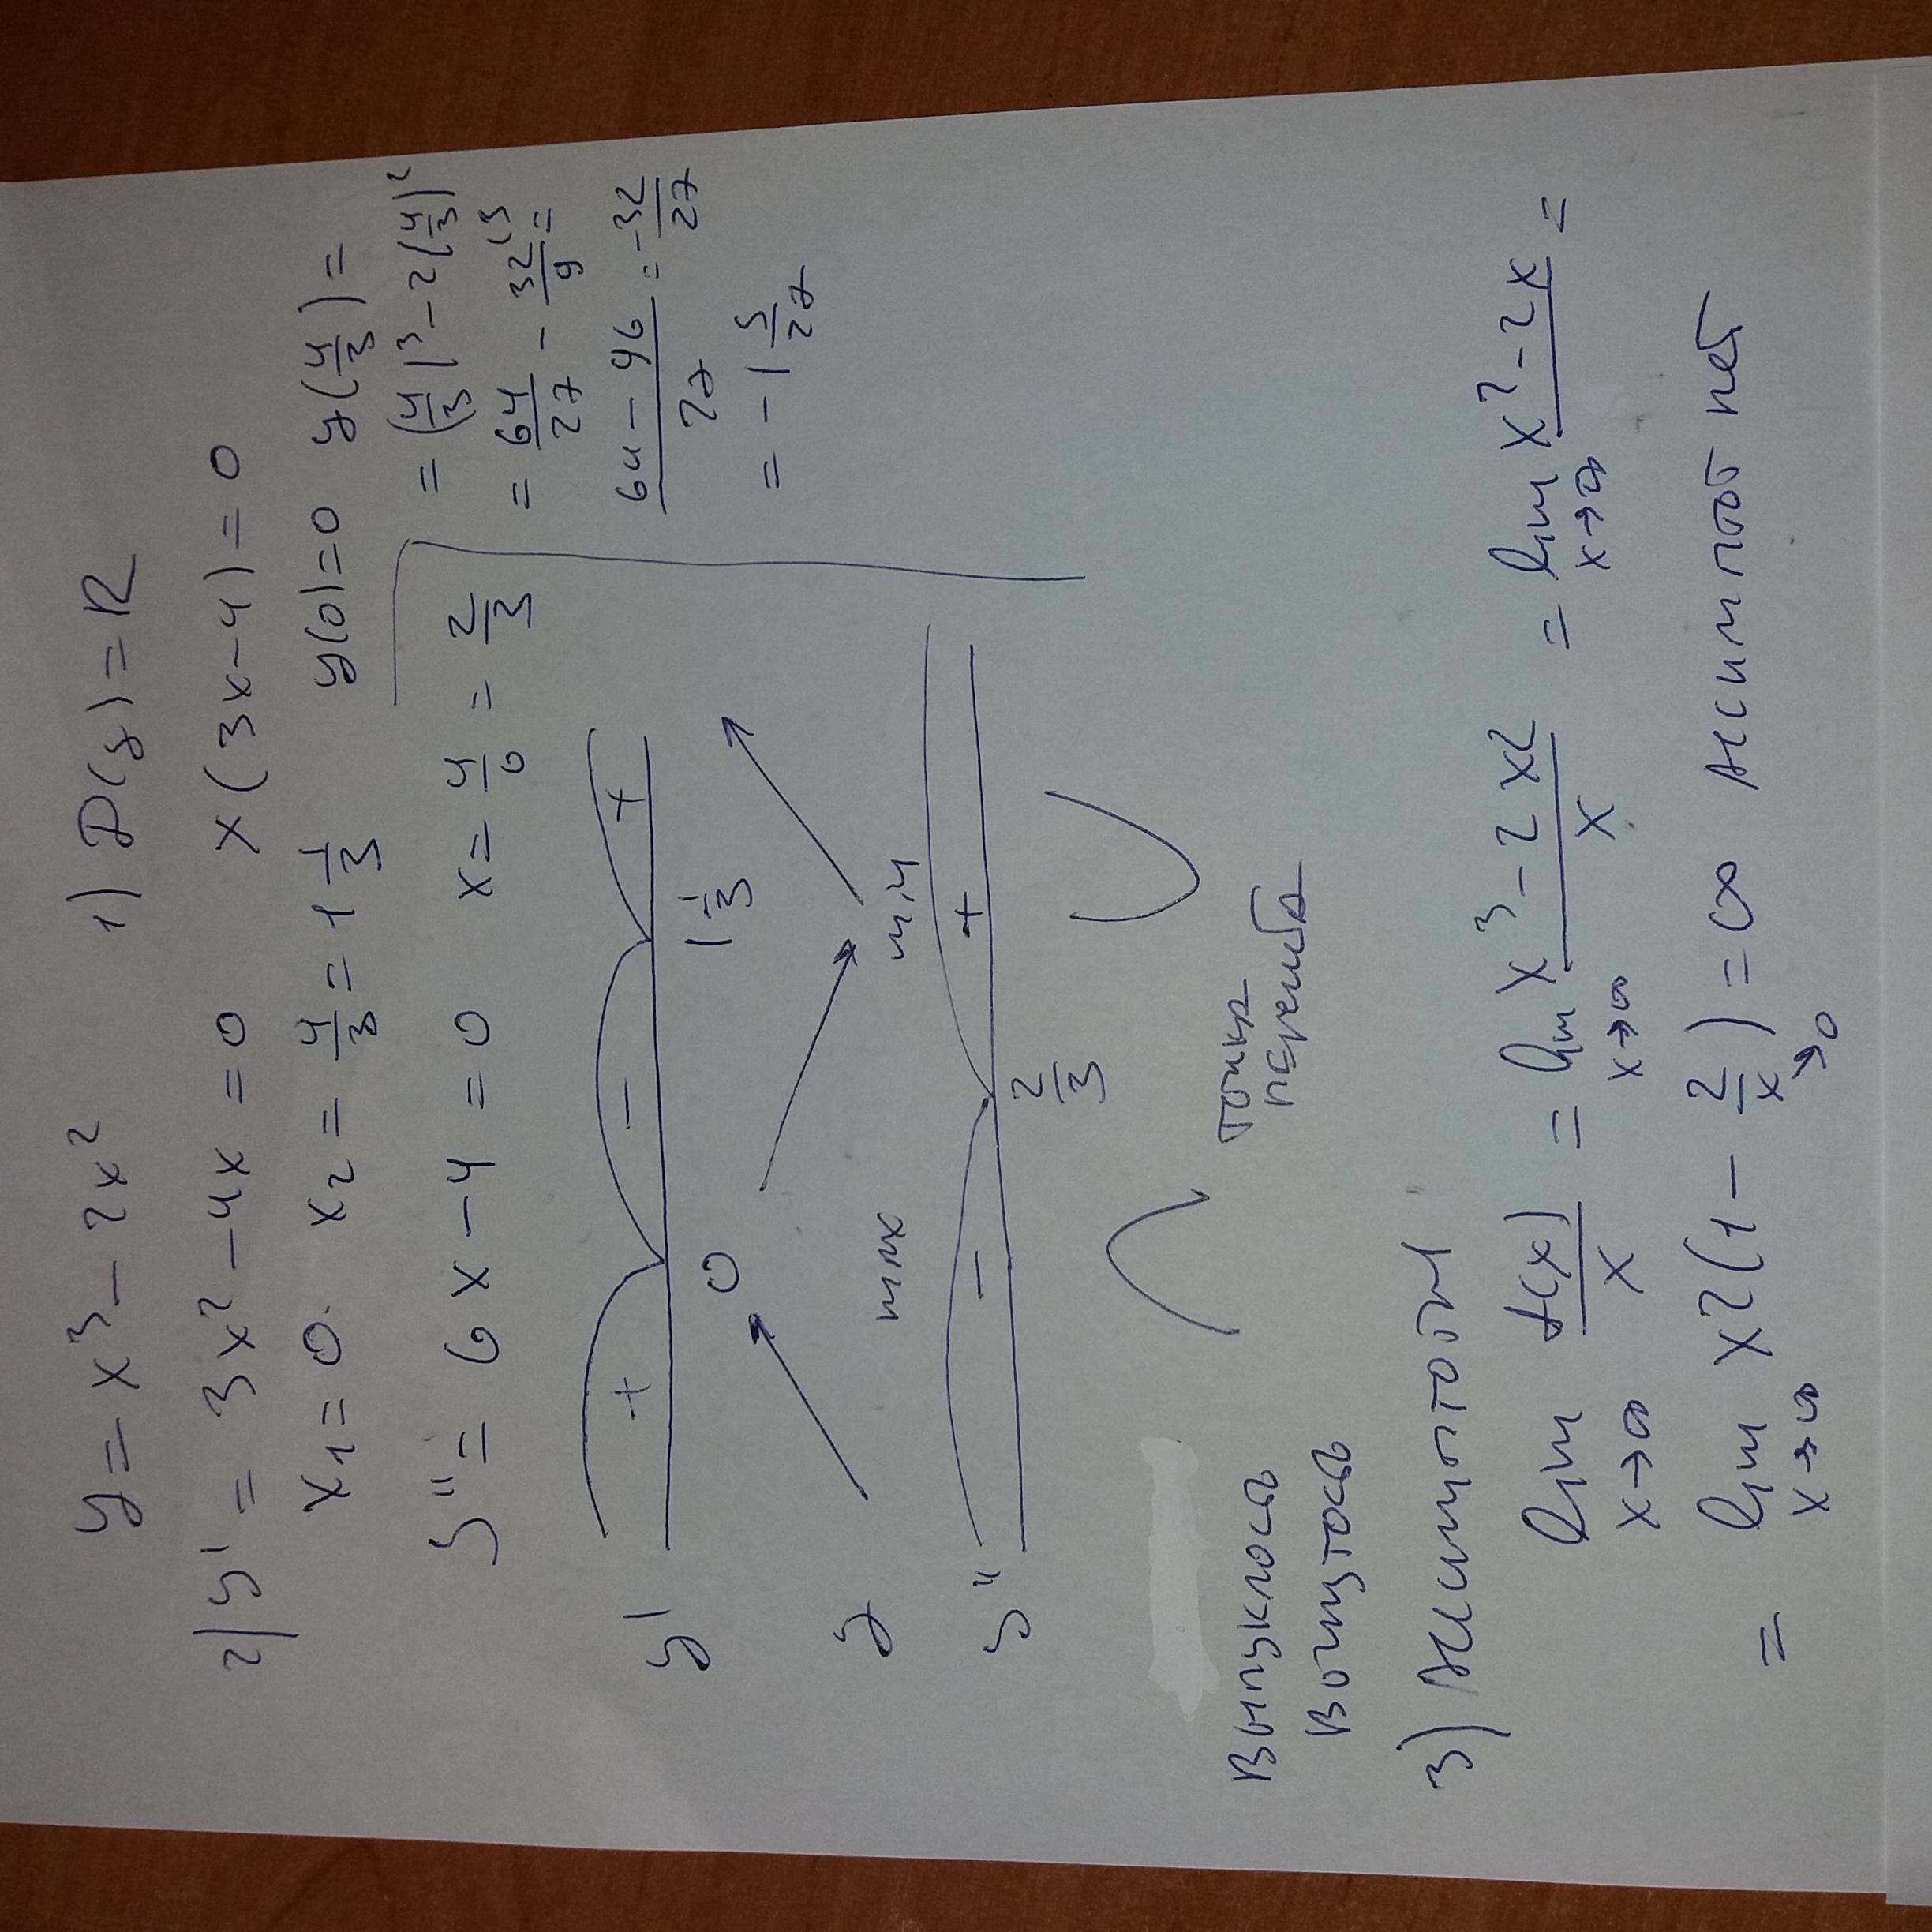 y = x³ - 2x² 1) D(y) = R
2) y' = 3x² - 4x = 0 x(3x-4) = 0
x₁ = 0 x₂ = 4/3 = 1 1/3 y(0) = 0 y(4/3) =
= (4/3)³ - 2(4/3)²
y'' = 6x - 4 = 0 x = 4/6 = 2/3
= 64/27 - 32/9 (3 =
64-96/27 = -32/27
= -1 5/27
y' + - +
0 1 1/3
y max min
y'' - +
2/3
Выпуклость Точка
Вогнутость перегиба
3) Асимптоты
lim x→∞ f(x)/x = lim x→∞ x³-2x²/x = lim x→∞ x²-2x =
= lim x→∞ x²(1 - 2/x →0) = ∞ Асимптот нет